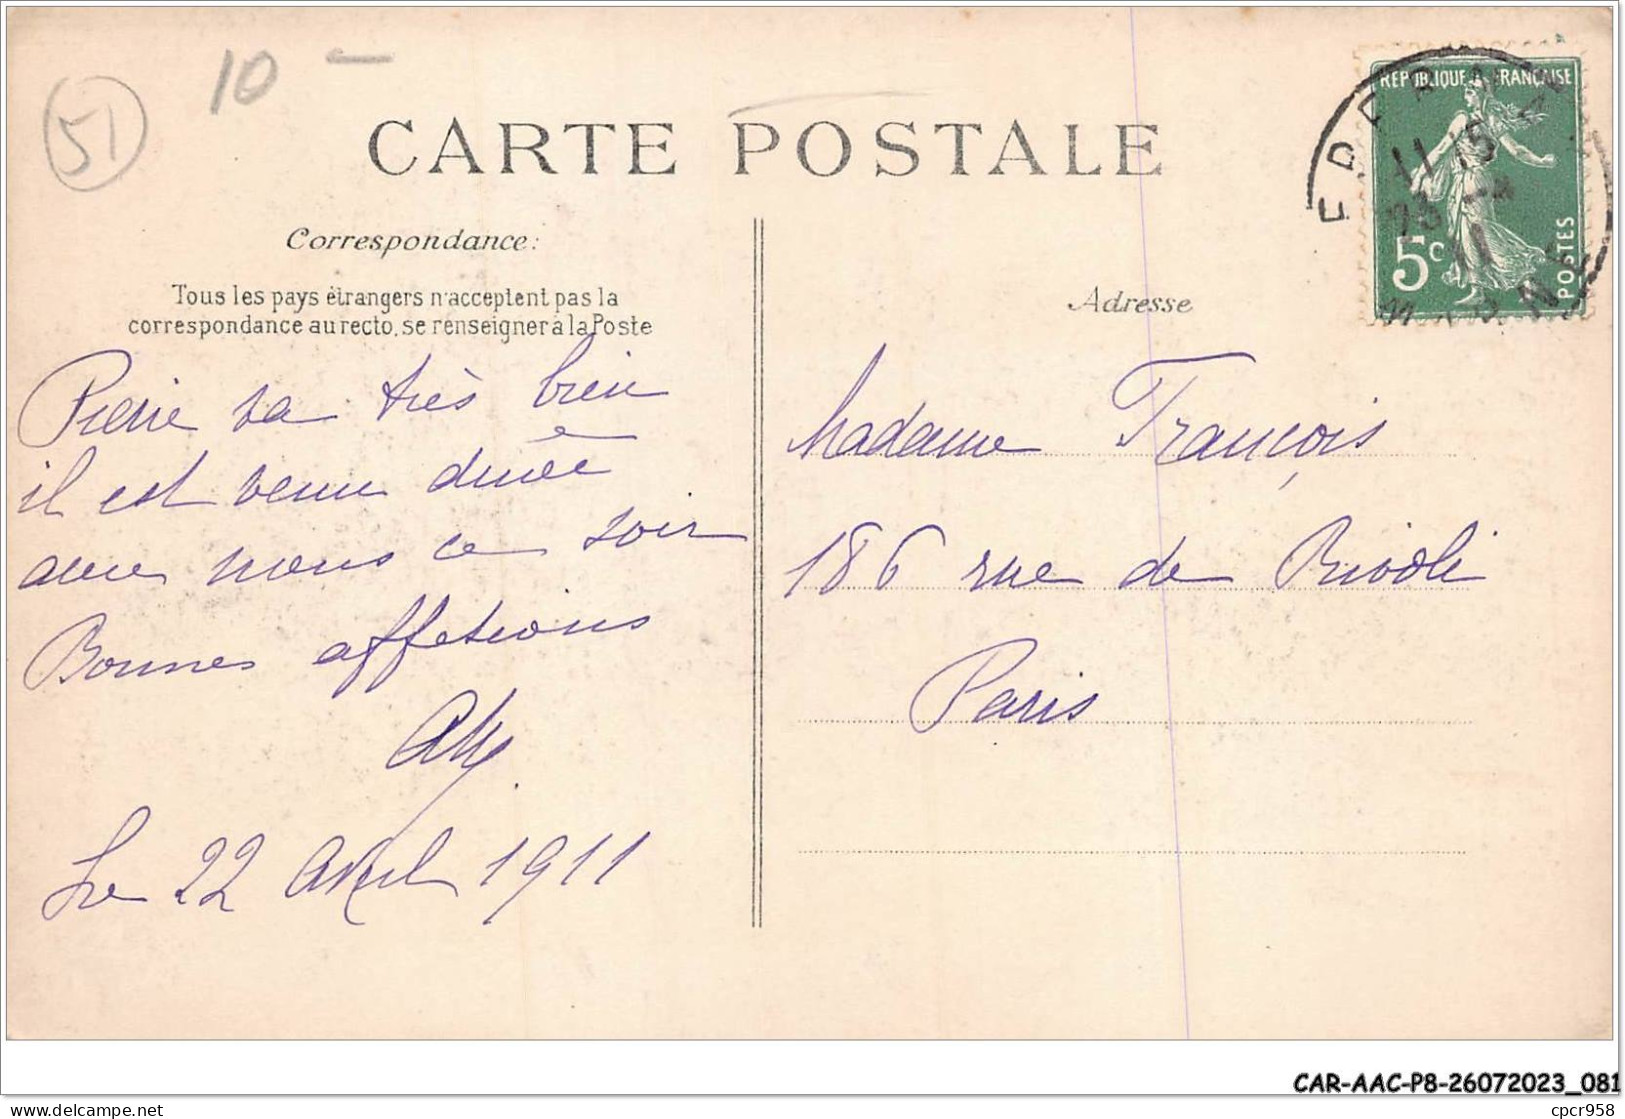 51
10 -
CARTE POSTALE
REPUBLIQUE FRANÇAISE
5c
POSTES
EPERNAY
MARNE
11 15
23 - 4
11
Correspondance:
Tous les pays étrangers n'acceptent pas la
correspondance au recto, se renseigner à la Poste
Adresse
Pierre va très bien
il est venu dinée
avec nous ce soir
Bonnes affetions
Le 22 Avril 1911
Madame François
186 rue de Rivoli
Paris
CAR-AAC-P8-26072023_081
delcampe.net
cpcr958